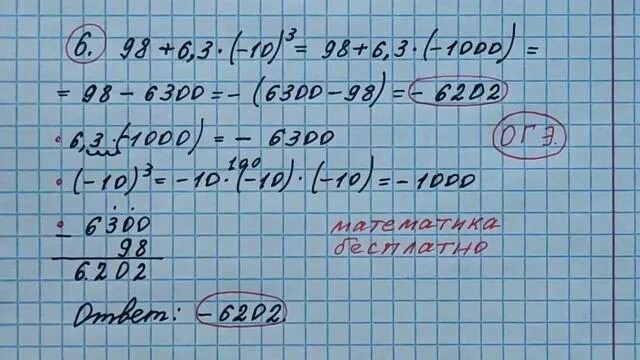 6. 98 + 6,3 · (-10)³ = 98 + 6,3 · (-1000) =
= 98 - 6300 = - (6300 - 98) = - 6202
• 6,3 · (-1000) = - 6300
ОГЭ.
• (-10)³ = -10 · (-10) · (-10) = -1000
100
• 6300
- 98
6202
математика
бесплатно
Ответ: -6202.